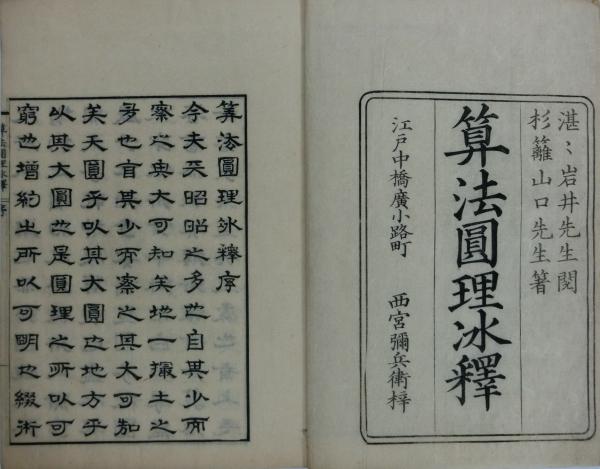 湛〻岩井先生閲
杉籬山口先生箸
算法圓理冰釋
江戸中橋廣小路町 西宮彌兵衛梓
算法圓理冰釋序
今夫天昭昭之多也自其少而
察之其大可知矣地一撮土之
多也自其少而察之其大可知
矣天圓乎以其大圓也地方乎
以其大圓也是圓理之所以可
窮也增約之所以可明也綴術
算法圓理冰釋 序